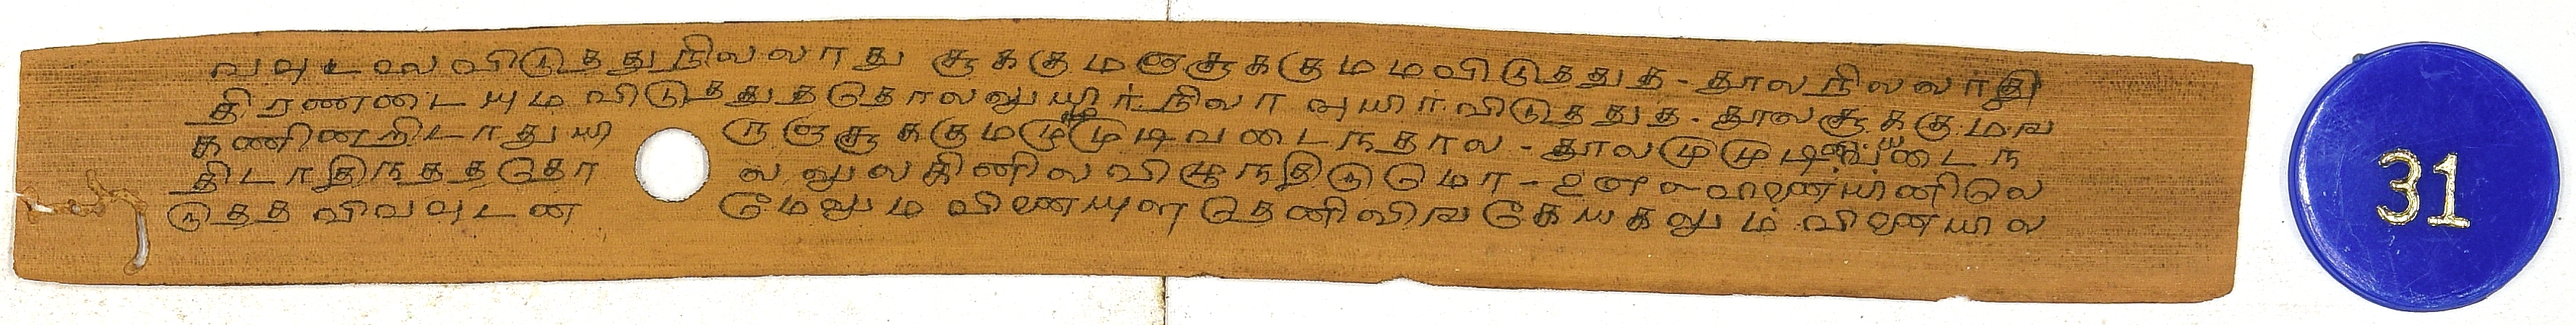 வவுடலவிடுதததுநிலலாது சூககுமஞசூககுமமவிடுதததுத - தூலநிலலாதி
திரணடையுமவிடுதததுததொலலுயிர்நிலா வுயிரவிடுதததுத - தூலசூககுமங
கணினறிடாதுயி ருஞசூககுமமுமுடிவடைநதால - தூலமுமுடிவடைந
திடாதிநதததொ லலுலகினிலவிழுநதிடுமோ - உ௭௰
டுதத விவவுடன மேலும வினையுள தெனிலிஙகேயகலும வினையில
31